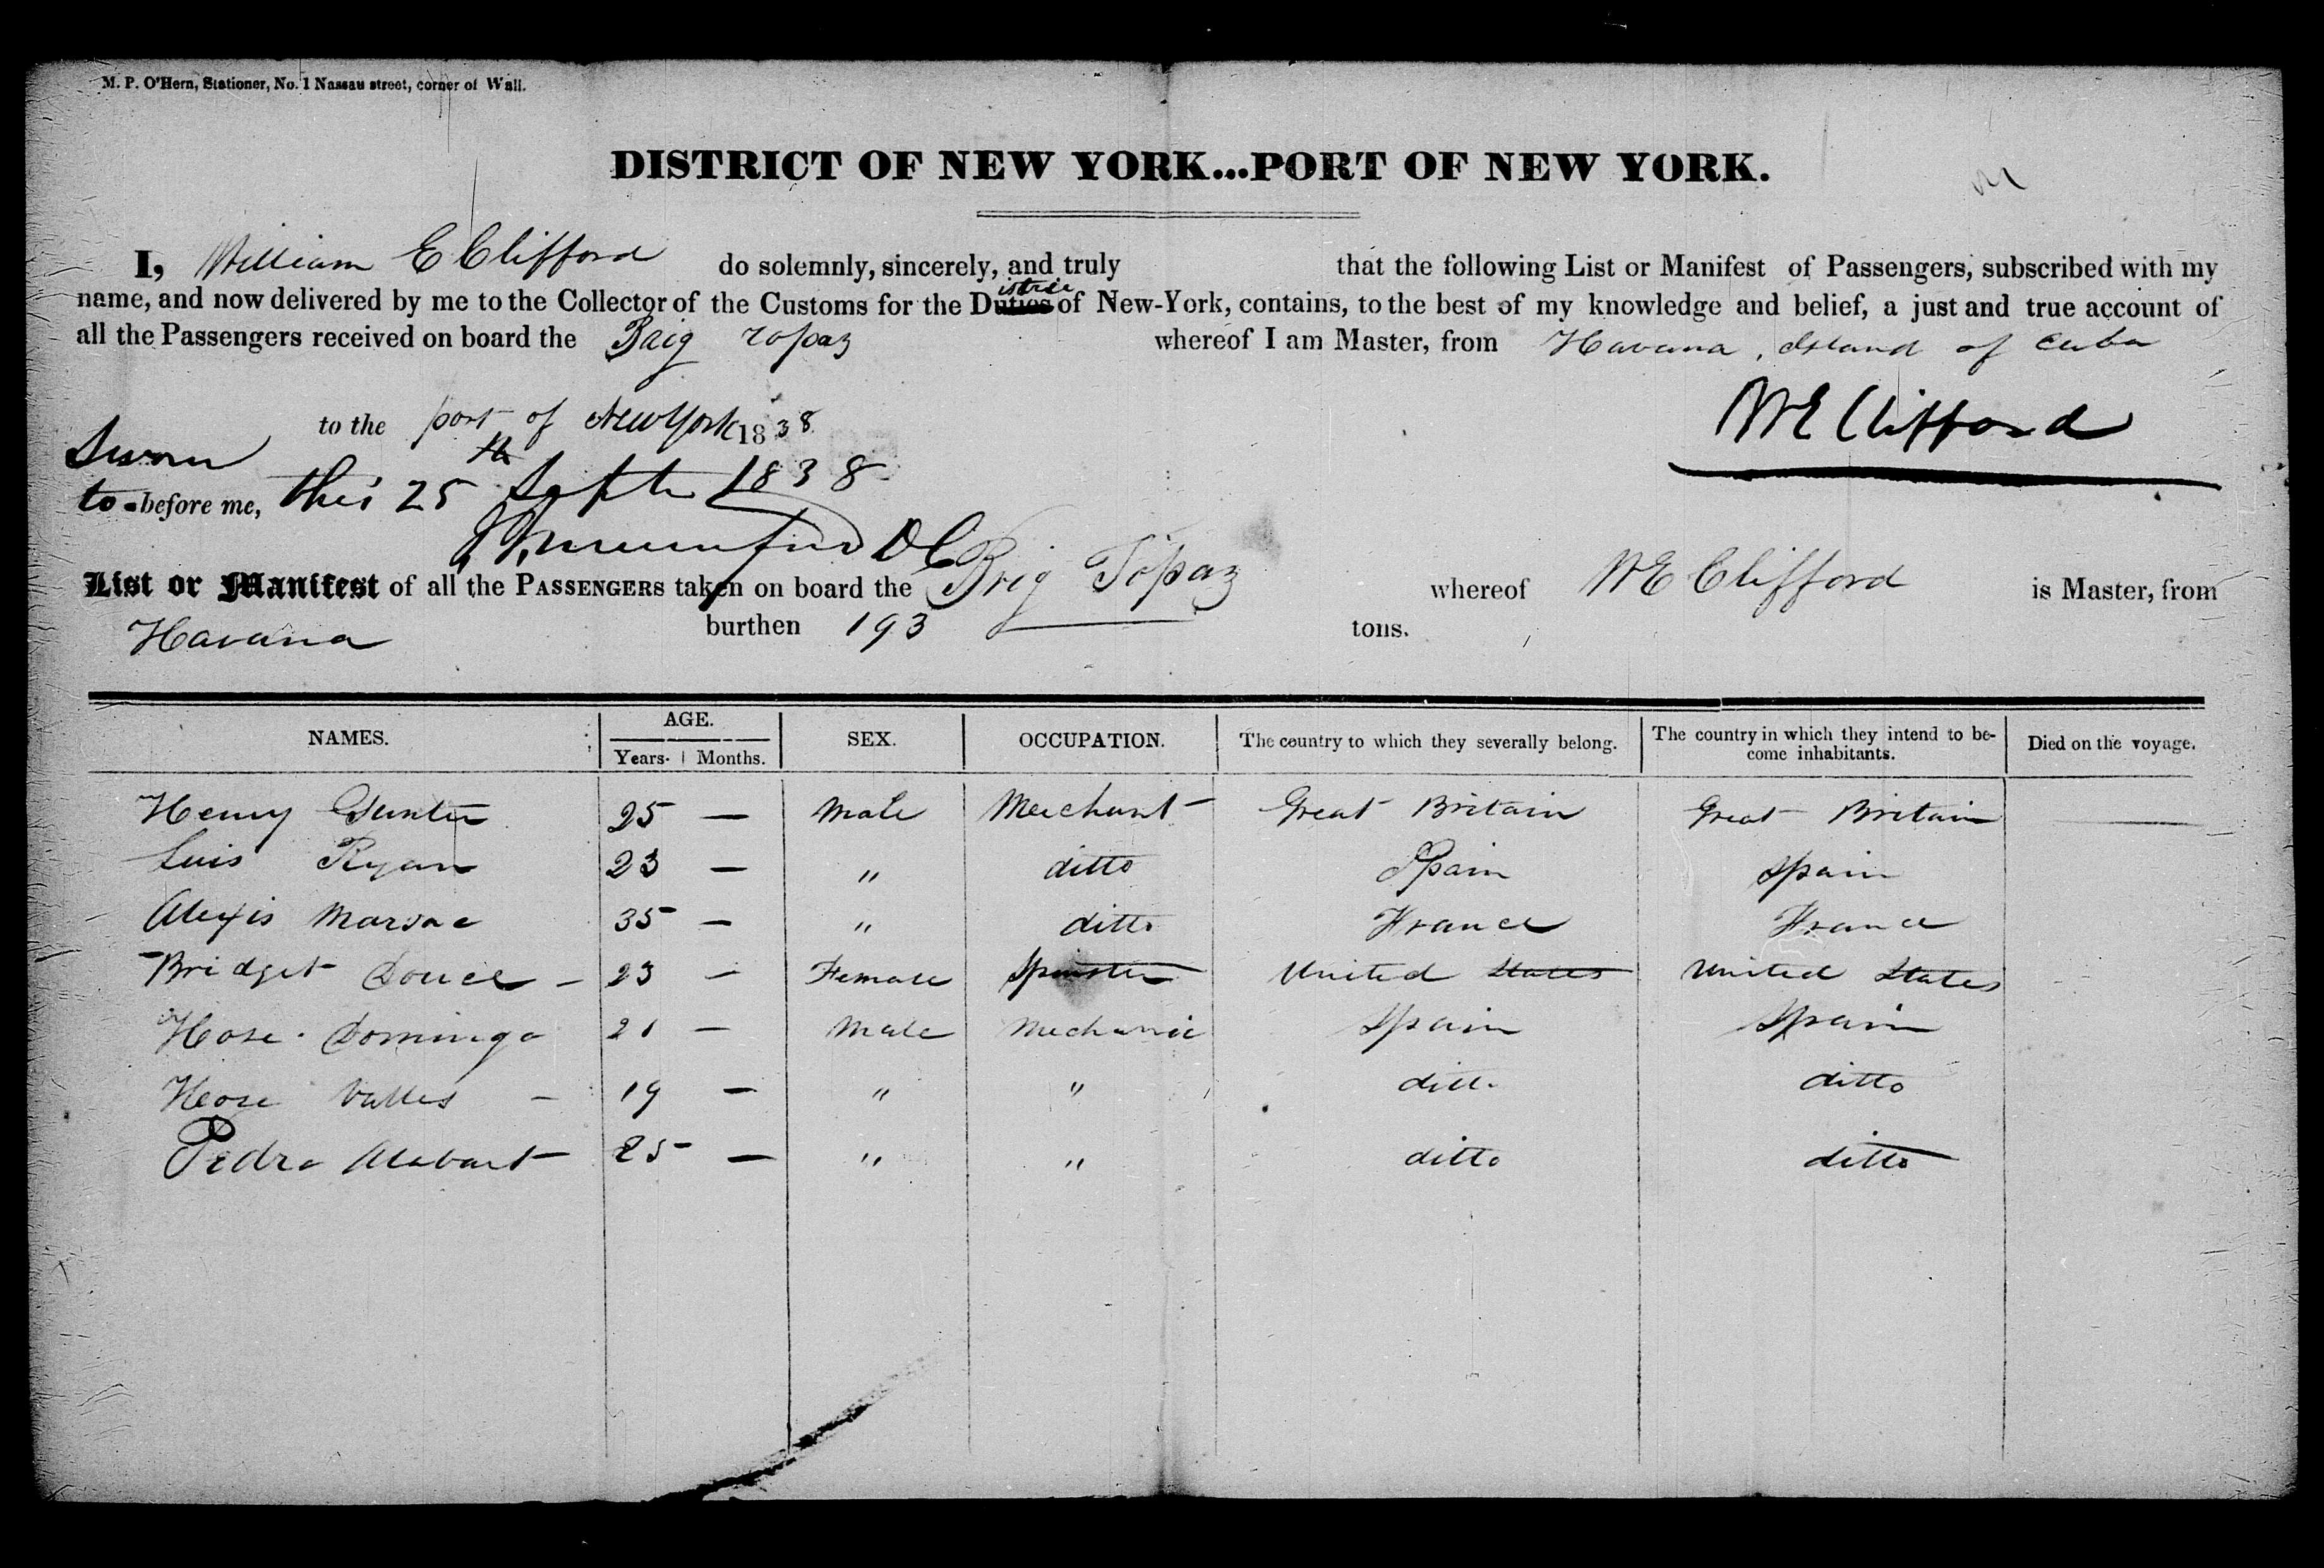 M. P. O'Hern, Stationer, No. 1 Nassau street, corner of Wall.
DISTRICT OF NEW YORK...PORT OF NEW YORK.
I, William E Clifford do solemnly, sincerely, and truly that the following List or Manifest of Passengers, subscribed with my
name, and now delivered by me to the Collector of the Customs for the Duties istric of New-York, contains, to the best of my knowledge and belief, a just and true account of
all the Passengers received on board the Brig Topaz whereof I am Master, from Havana, Island of Cuba
to the port of New York 1838
WE Clifford
Sworn
to before me, this 25th Septr 1838
DC
List or Manifest of all the PASSENGERS taken on board the Brig Topaz whereof WE Clifford is Master, from
Havana burthen 193 tons.
NAMES. AGE. Years. Months. SEX. OCCUPATION. The country to which they severally belong. The country in which they intend to become inhabitants. Died on the voyage.
Henry Gunter 25 — Male Merchant Great Britain Great Britain —
Luis Ryan 23 — " ditto Spain Spain
Alexis Marsac 35 — " ditto France France
Bridget Douce - 23 — Female Spinster United States United States
Hose Domingo 21 — Male Mechanic Spain Spain
Hose Valles - 19 — " " ditto ditto
Pedro Alabart 25 — " " ditto ditto